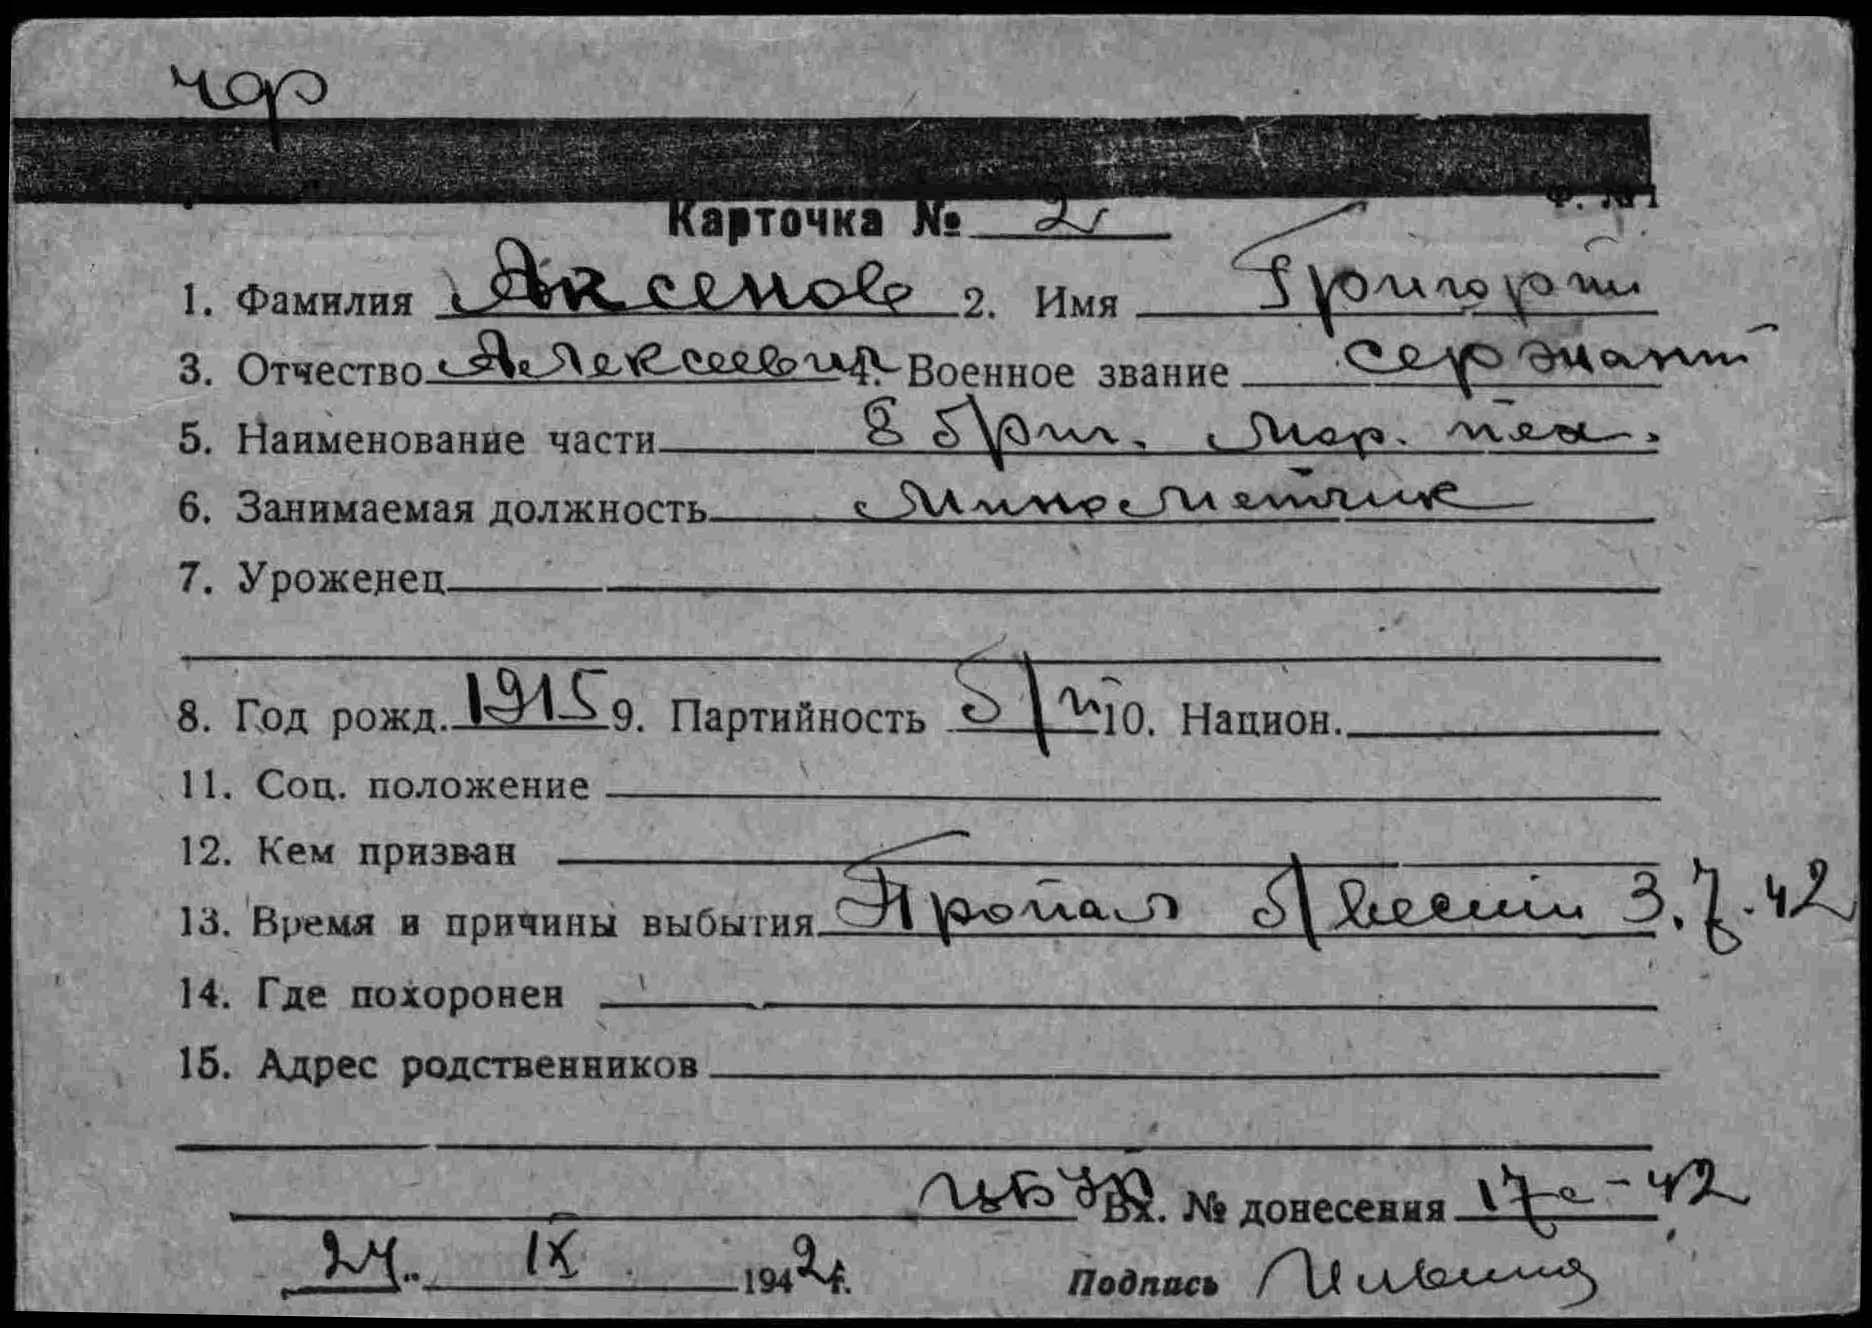 чф
Ф. №1
Карточка № 2
1. Фамилия Аксенов 2. Имя Григорий
3. Отчество Алексеевич 4. Военное звание сержант
5. Наименование части 8 бриг. мор. пех.
6. Занимаемая должность Минометчик
7. Уроженец
8. Год рожд. 1915 9. Партийность б/п 10. Национ.
11. Соц. положение
12. Кем призван
13. Время и причины выбытия Пропал б/вести 3.7.42
14. Где похоронен
15. Адрес родственников
Вх. № донесения 17с-42
24. IX 1942 г. Подпись Ильина